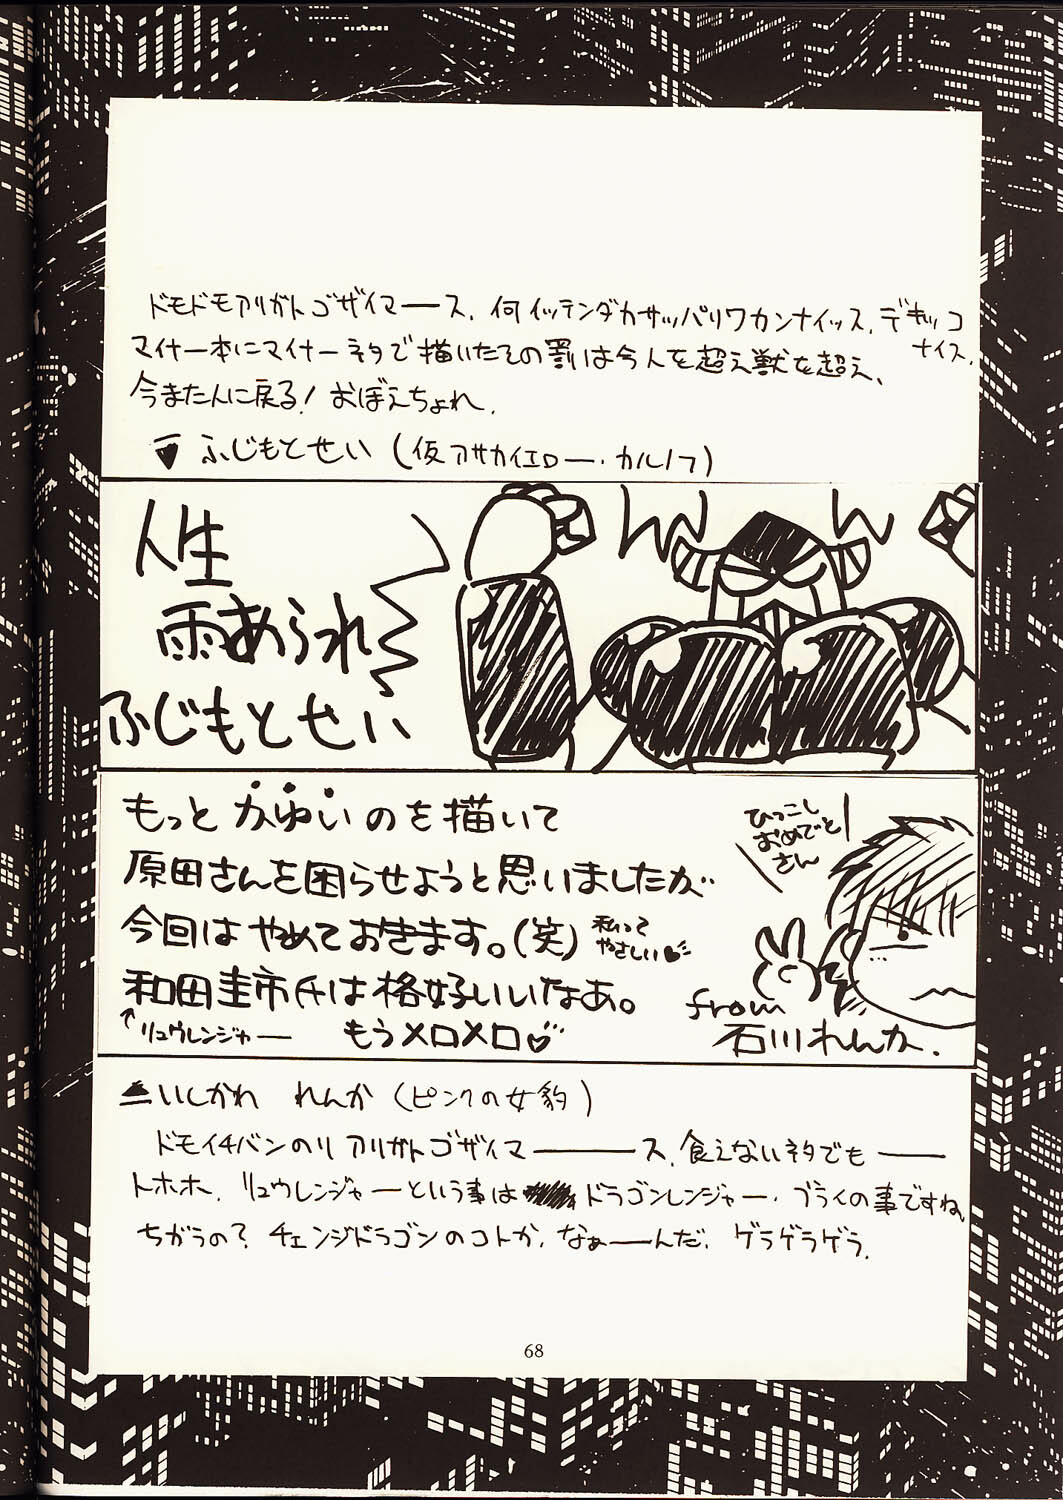 ドモドモアリガトゴザイマース、何イッテンダカサッパリワカンナイッス、デキッコナイス、
マイナー本にマイナーネタで描いたその罰は今人を超え獣を超え、
今また人に戻る！おぼえちょれ、
ふじもとせい（仮アサカイエロー・カルノフ）
人生
雨あられ
ふじもとせい
もっとかゆいのを描いて
原田さんを困らせようと思いましたが
今回はやめておきます。（笑）私ってやさしい♥
和田圭市氏は格好いいなあ。
↑リュウレンジャー もうメロメロ♡
ひっこし
おめでと
さん
from
石川れんか．
いしかわ れんか（ピンクの女豹）
ドモイチバンのリアリガトゴザイマーーース、食えないネタでもー
トホホ、リュウレンジャーという事はドラゴンレンジャー・ブライの事ですね、
ちがうの？チェンジドラゴンのコトか、なぁーんだ、ゲラゲラゲラ、
68